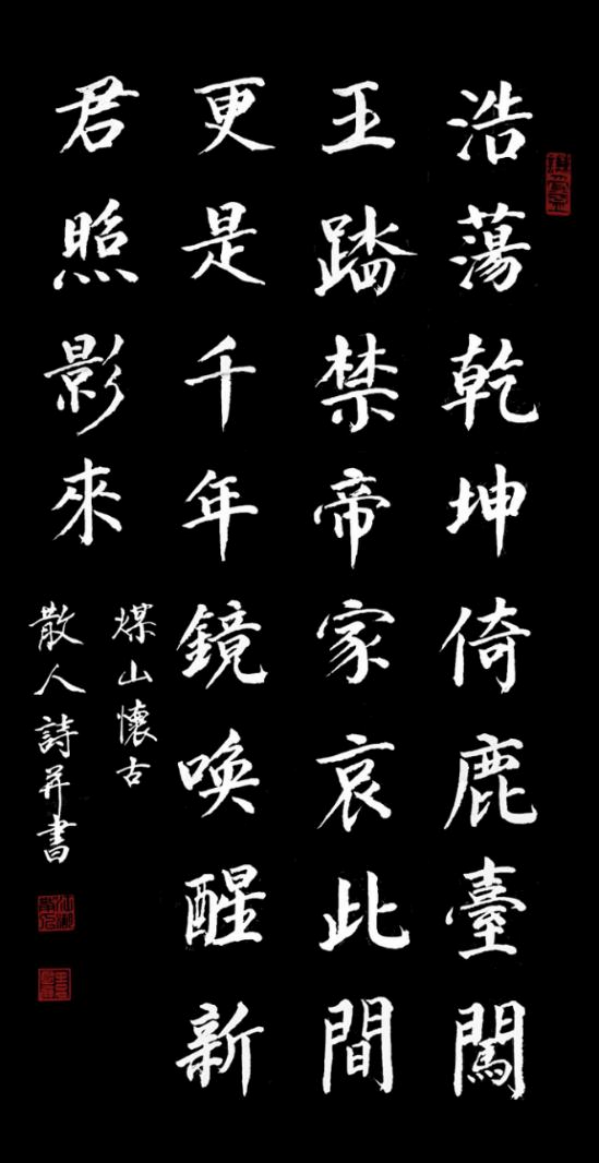 浩蕩乾坤倚鹿臺闖
王踏禁帝家哀此間
更是千年鏡喚醒新
君照影來
煤山懷古
散人詩并書